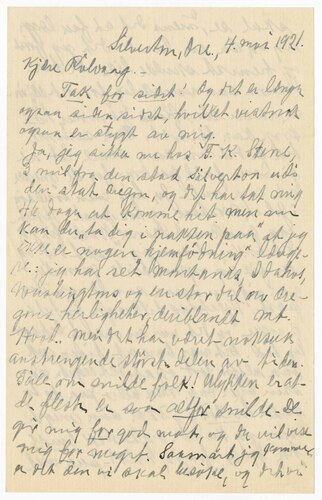 Silverton, Ore., 4. mai 1921.
Kjære Rølvaag. -
Tak for sidst! Og det er længe
ogsaa siden sidst, hvilket visstnok
ogsaa er stygt av mig.
Ja, jeg sitter nu hos T. K.
5 mil fra den stad Silverton uti
den stat Oregon, og det har tat mig
dage at komme hit, men saa
kan du "ta dig i nakken paa" at jeg
ikke er nogen "hjemfødning" længe-
re; jeg har set Montanas, Idahos,
Washingtons og en stor del av Ore-
gons herligheter, deriblandt Mt.
Hood. Men det har været noksaa
anstrengende størst delen av tiden.
Fælt om snilde folk! Ulykken er at
de flest er saa altfor snilde. De
gir mig for god mat, og de vil vise
mig for meget. Saasnart jeg kommer
er det den vi skal besøke, og det vi